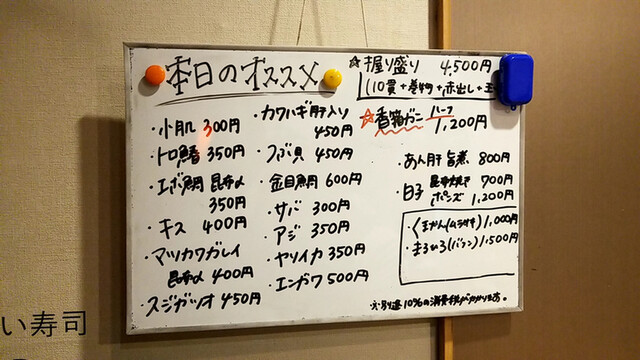 本日のオススメ
・小肌 300円
・トロ鯖 350円
・エボ鯛 昆布〆
350円
・キス 400円
・マツカワガレイ
昆布〆 400円
・スジガツオ 450円
・カワハギ肝入り
450円
・つぶ貝 450円
・金目鯛 600円
・サバ 300円
・アジ 350円
・ヤリイカ 350円
・エンガワ 500円
☆握り盛り 4,500円
(10貫+巻物+赤出し+玉
☆香箱ガニ ハーフ
1,200円
・あん肝旨煮 800円
・白子 昆布焼き 700円
ポンズ 1,200円
・くまがい(ムラサキ) 1,000円
・まるひろ(バフン) 1,500円
※別途10%の消費税がかかります。
い寿司